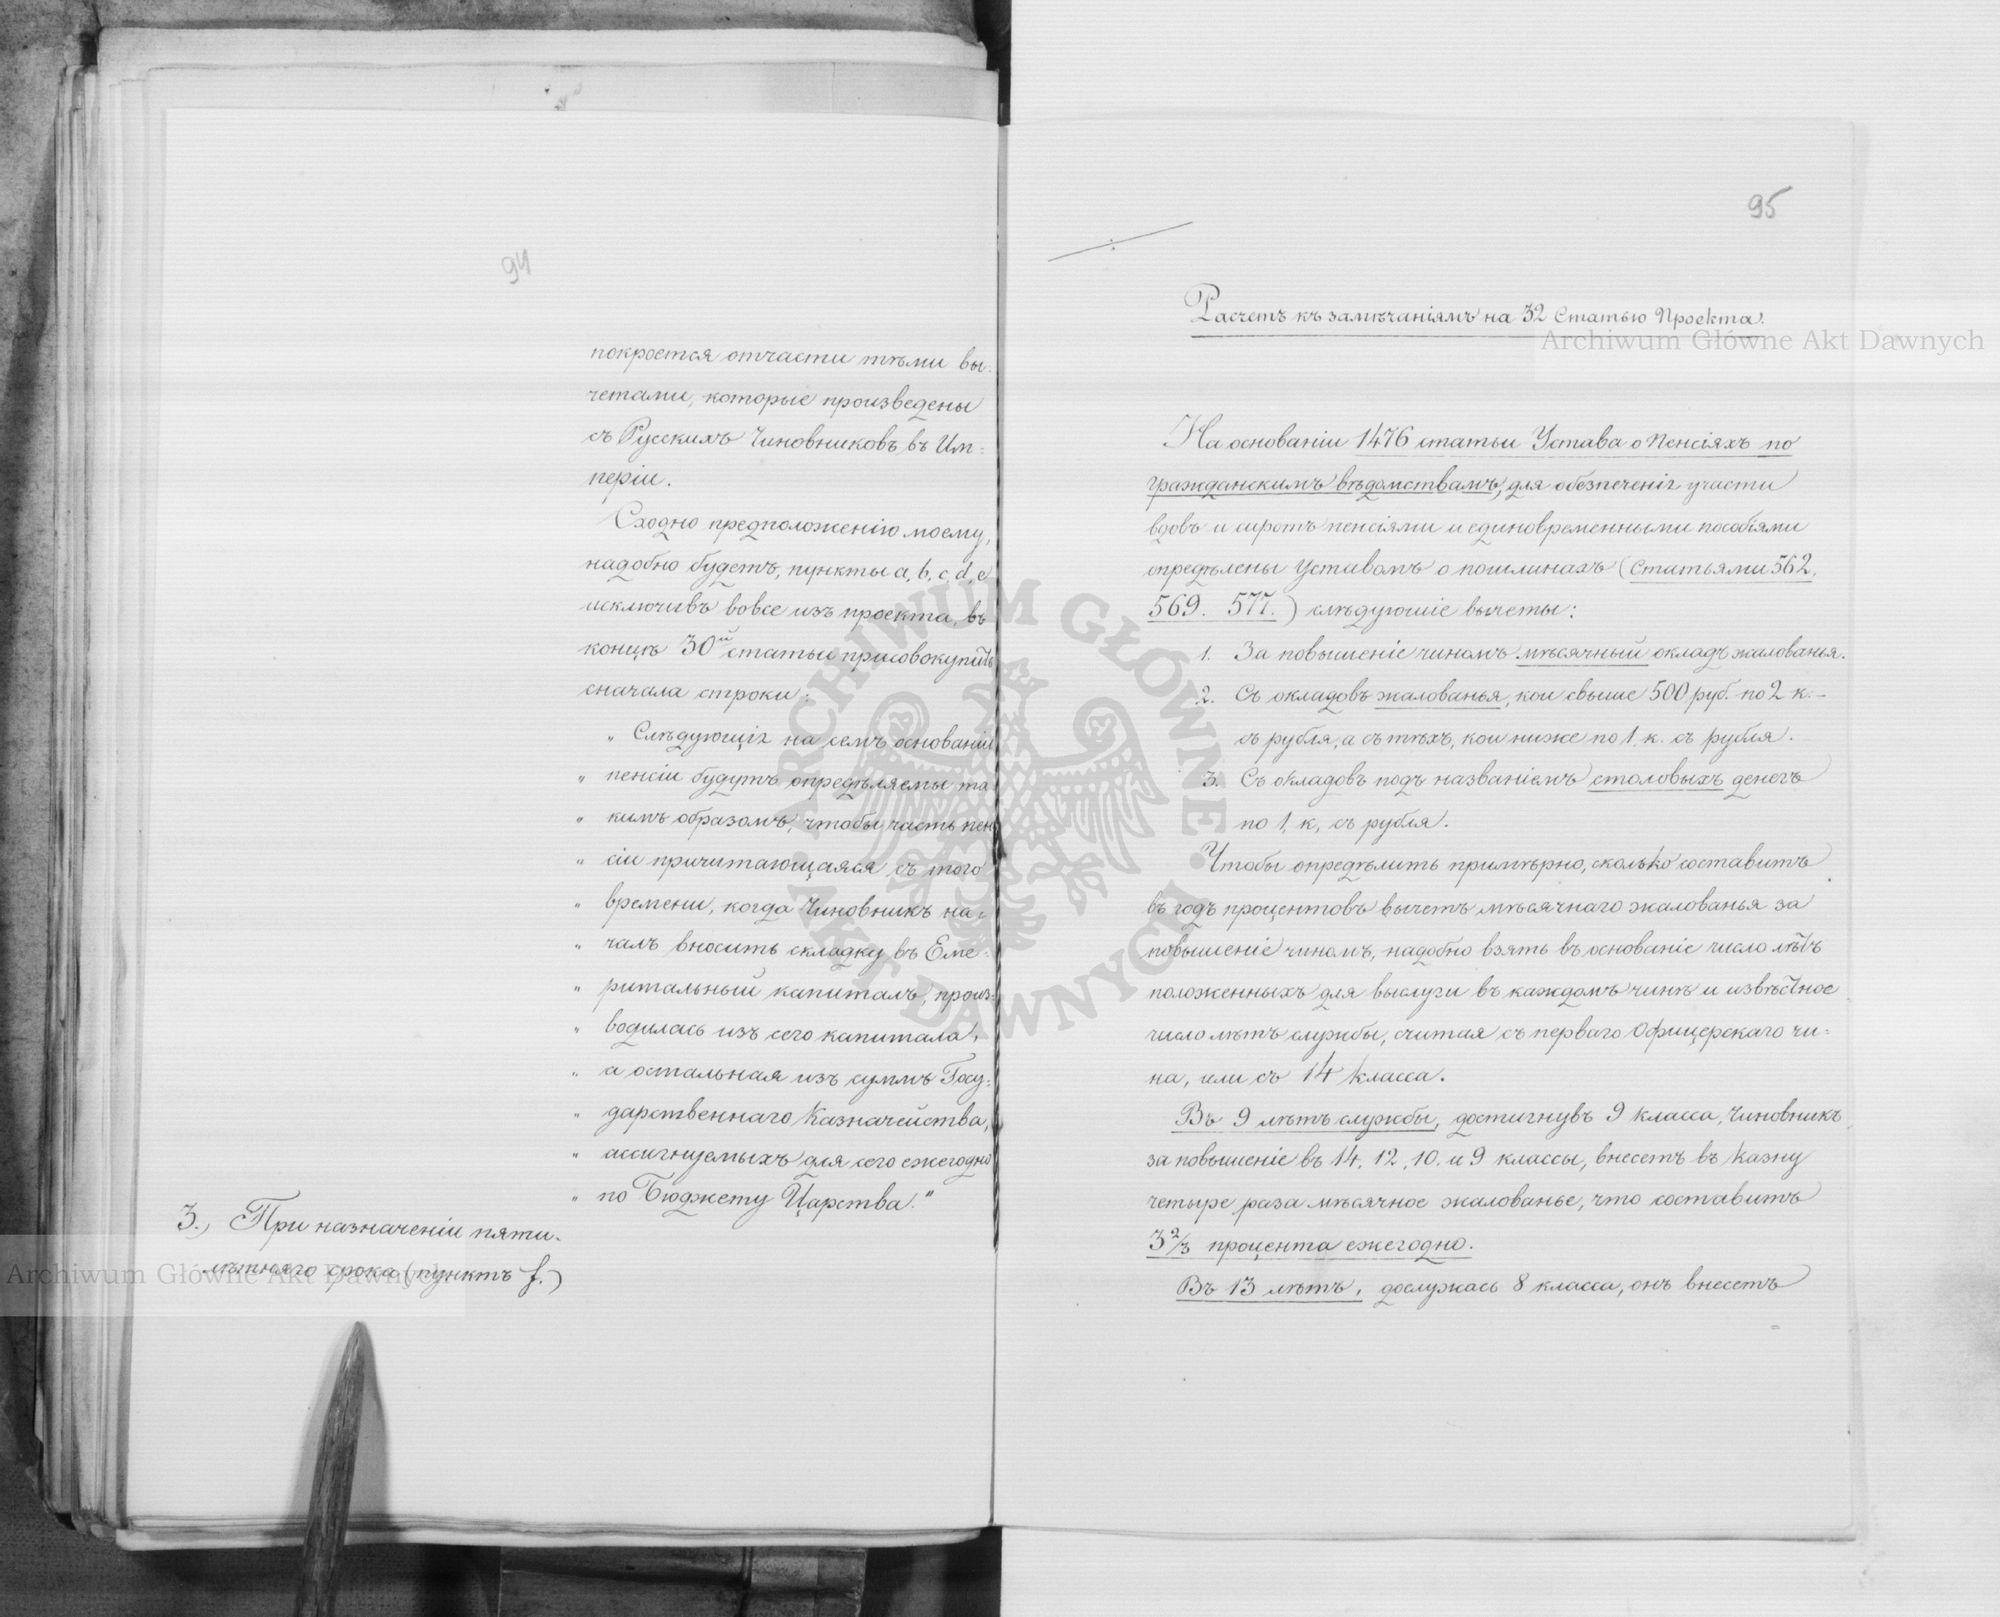 94
покроется отчасти тѣми вы-
четами, которые произведены
съ Русскихъ Чиновниковъ въ Им-
періи.
Сходно предположенію моему,
надобно будетъ, пункты a, b, c, d, e
исключивъ вовсе изъ проекта, въ
концѣ 30й статьи присовокупить
сначала строки:
„ Слѣдующія на семъ основаніи
„ пенсіи будутъ опредѣляемы та
„ кимъ образомъ, чтобы часть пен
„ сіи причитающаяся съ того
„ времени, когда Чиновникъ на-
„ чалъ вносить складку въ Еме-
„ ритальный капиталъ, произ-
„ водилась изъ сего капитала,
„ а остальная изъ суммъ Госу-
„ дарственнаго Казначейства,
„ ассигнуемыхъ для сего ежегодно
„ по Бюджету Царства."
3., При назначеніи пяти-
лѣтняго срока (пунктъ f.)
95
Расчетъ къ замѣчаніямъ на 32 Статью Проекта.
На основаніи 1476 статьи Устава о Пенсіяхъ по
гражданскимъ вѣдомствамъ, для обезпеченія участи
вдовъ и сиротъ пенсіями и единовременными пособіями
опредѣлены Уставомъ о пошлинахъ (Статьями 562,
569. 577.) слѣдующіе вычеты:
1. За повышеніе чиномъ мѣсячный окладъ жалованья.
2. Съ окладовъ жалованья, кои свыше 500 руб. по 2 к. –
съ рубля, а съ тѣхъ, кои ниже по 1. к. съ рубля.
3. Съ окладовъ подъ названіемъ столовыхъ денегъ
по 1, к, съ рубля.
Чтобы опредѣлить примѣрно, сколько составитъ
въ годъ процентовъ вычетъ мѣсячнаго жалованья за
повышеніе чиномъ, надобно взять въ основаніе число лѣтъ
положенныхъ для выслуги въ каждомъ чинѣ и извѣстное
число лѣтъ службы, считая съ перваго Офицерскаго чи-
на, или съ 14 класса.
Въ 9 лѣтъ службы, достигнувъ 9 класса, Чиновникъ
за повышеніе въ 14, 12, 10. и 9 классы, внесетъ въ Казну
четыре раза мѣсячное жалованье, что составитъ
3 2/3 процента ежегодно.
Въ 13 лѣтъ, дослужась 8 класса, онъ внесетъ
Archiwum Główne Akt Dawnych
Archiwum Główne Akt Dawnych
ARCHIWUM GŁÓWNE AKT DAWNYCH